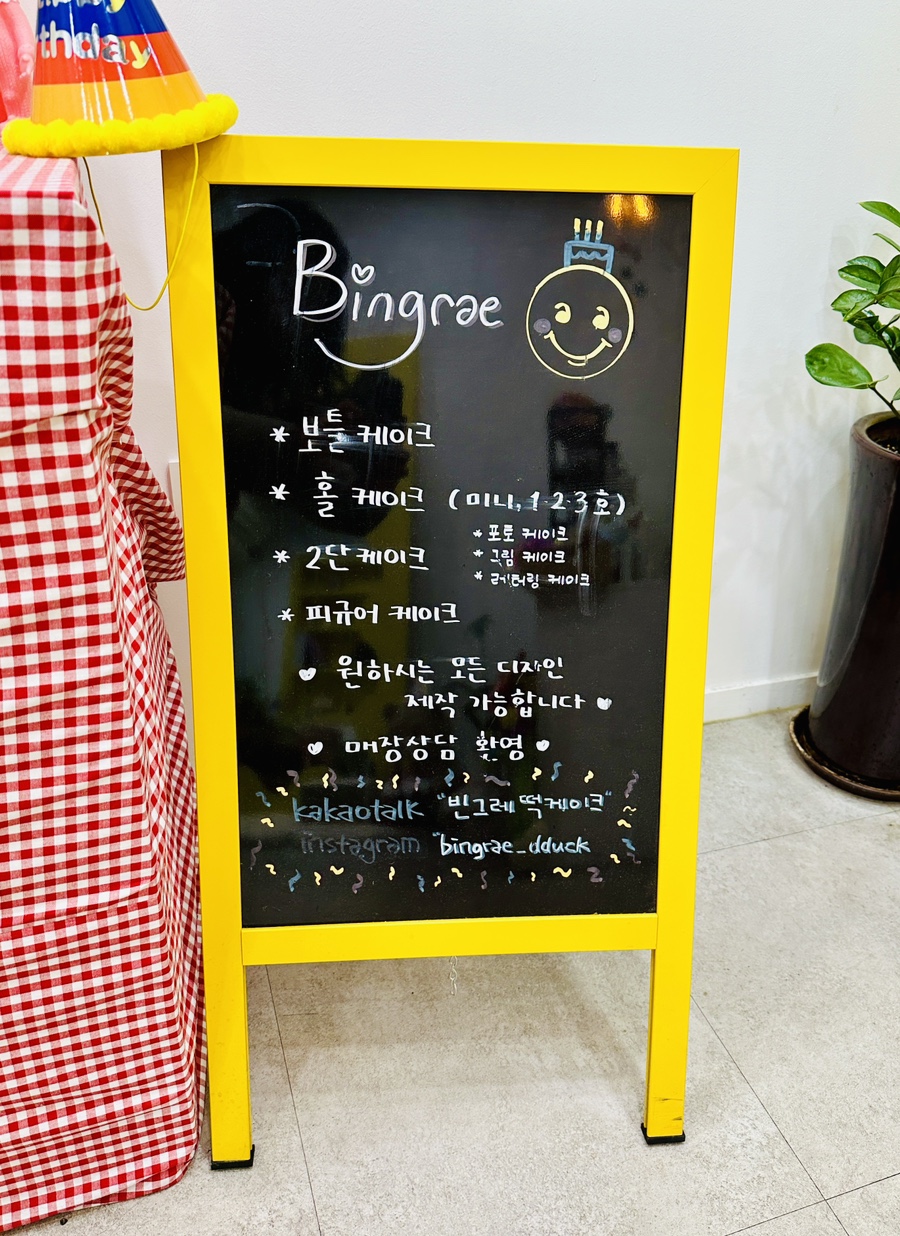 birthday
Bingrae
* 보틀 케이크
* 홀 케이크 (미니, 1·2·3호)
* 포토 케이크
* 그림 케이크
* 레터링 케이크
* 2단 케이크
* 피규어 케이크
♥ 원하시는 모든 디자인
제작 가능합니다 ♥
♥ 매장상담 환영 ♥
kakaotalk "빈그레 떡케이크"
instagram "bingrae_dduck